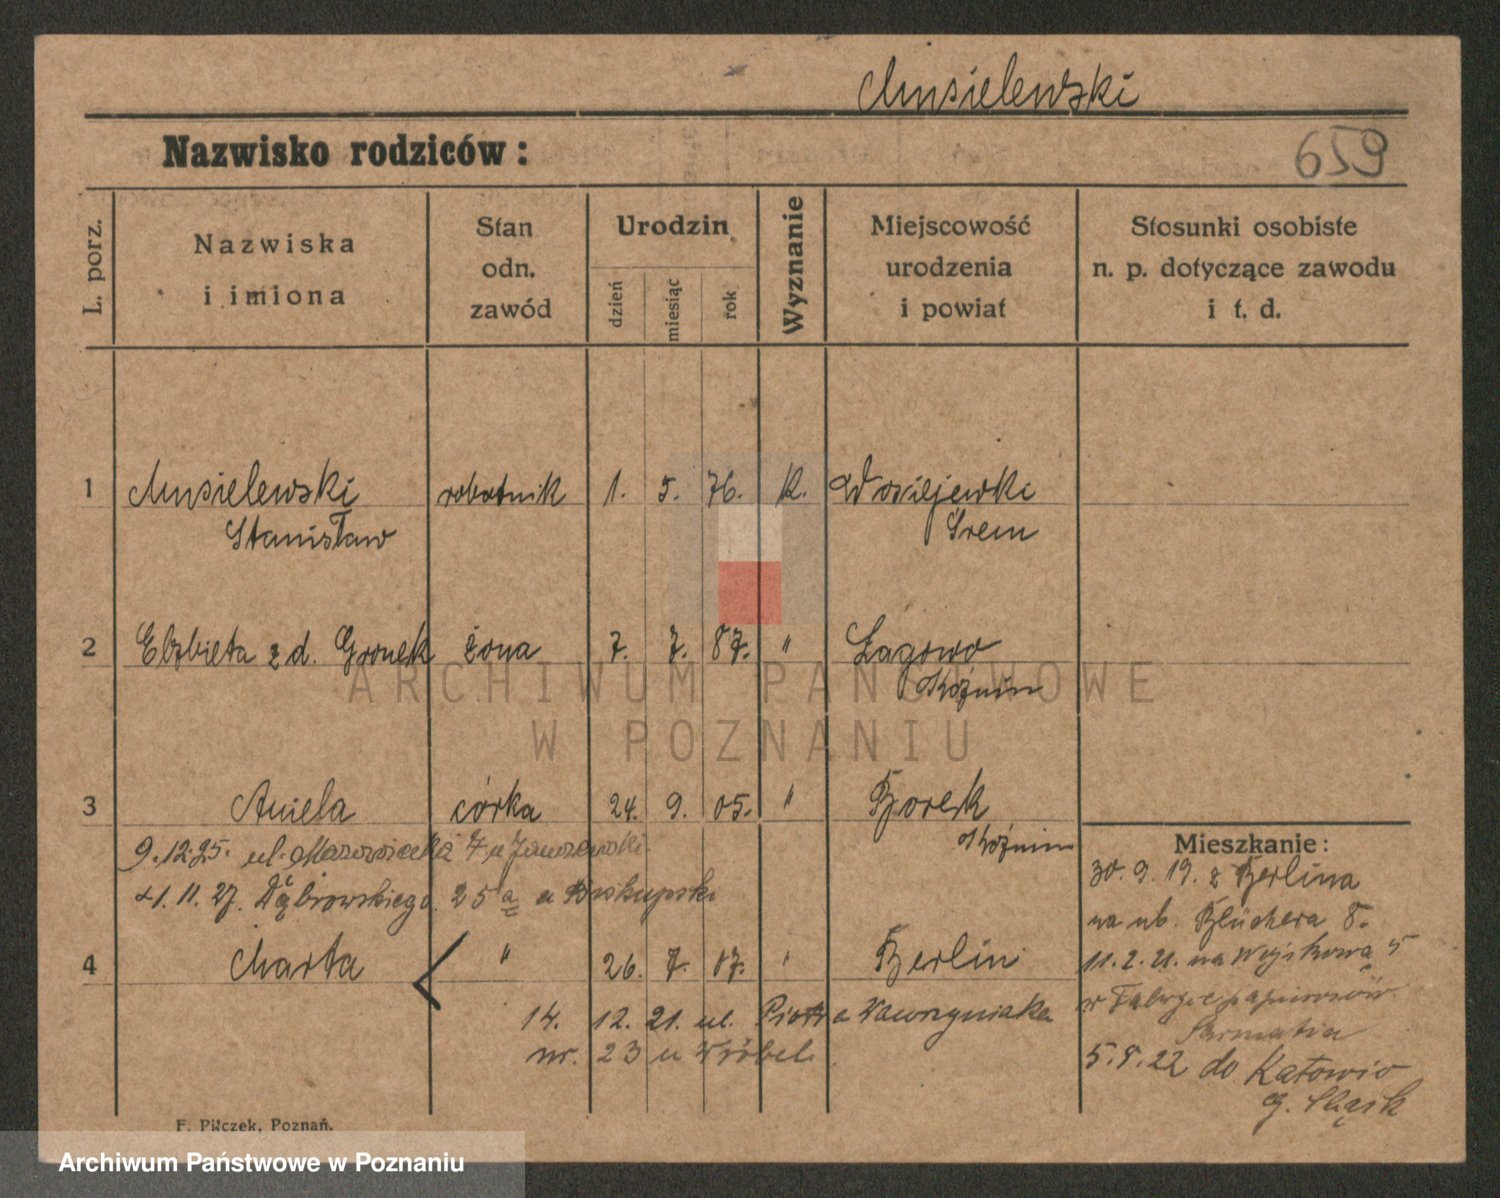 Musielewski
Nazwisko rodziców:
659
L. porz.
Nazwiska
i imiona
Stan
odn.
zawód
Urodzin
dzień
miesiąc
rok
Wyznanie
Miejscowość
urodzenia
i powiat
Stosunki osobiste
n. p. dotyczące zawodu
i t. d.
1 Musielewski robotnik 1. 5. 76. K. Wosiejewki
Stanisław Śrem
2 Elżbieta z d. Gronek żona 7. 7. 87. " Łagowo
Koźmin
3 Aniela córka 24. 9. 05. " Borek
Koźmin
9.12.25. ul. Mazowiecka 7 u Janszewski
21. 11. 27. Dąbrowskiego 25a u Biskupski
4 Marta " 26. 7. 07. " Berlin
14. 12. 21. ul. Piotra Wawrzyniaka
nr. 23 u Wróbel.
Mieszkanie:
30. 9. 19. z Berlina
na ul. Blüchera 8.
11. 2. 21. na Wojskowa 5
w Fabryce papierosów
Sarmatia
5. 8. 22 do Katowic
G. Śląsk
F. Pilczek, Poznań.
ARCHIWUM PAŃSTWOWE
W POZNANIU
Archiwum Państwowe w Poznaniu